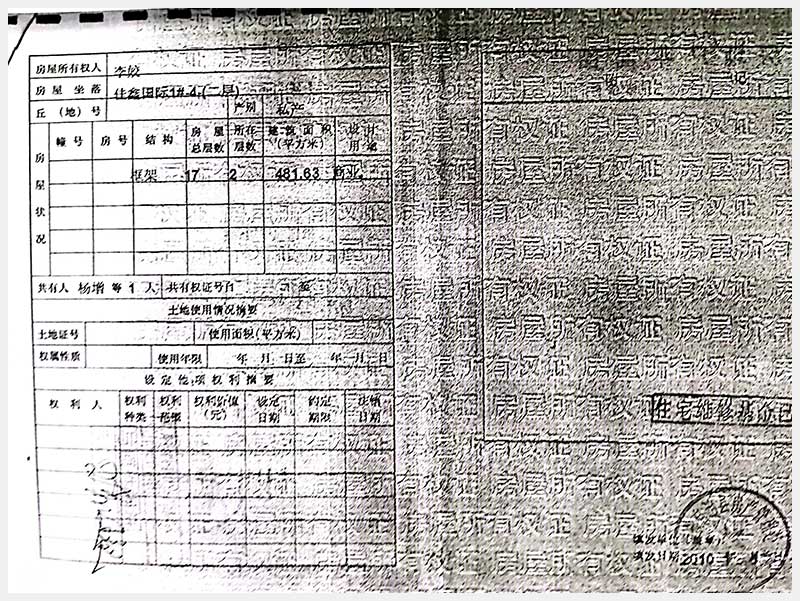 房屋所有权人 李皎
房屋坐落 佳鑫国际1#-4-(二层)
丘(地)号 产别 私产
房屋状况
幢号 房号 结构 房屋总层数 所在层数 建筑面积(平方米) 设计用途
框架 17 2 481.63 商业
共有人 杨增 等 1 人 共有权证号自 至
土地使用情况摘要
土地证号 使用面积(平方米)
权属性质 使用年限 年 月 日至 年 月 日
设定他项权利摘要
权利人 权利种类 权利范围 权利价值(元) 设定日期 约定期限 注销日期
住宅维修基金已
填发单位(盖章)
填发日期 2010 年 月
房屋所有权证